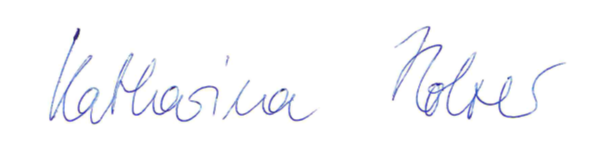 Katharina Holzer